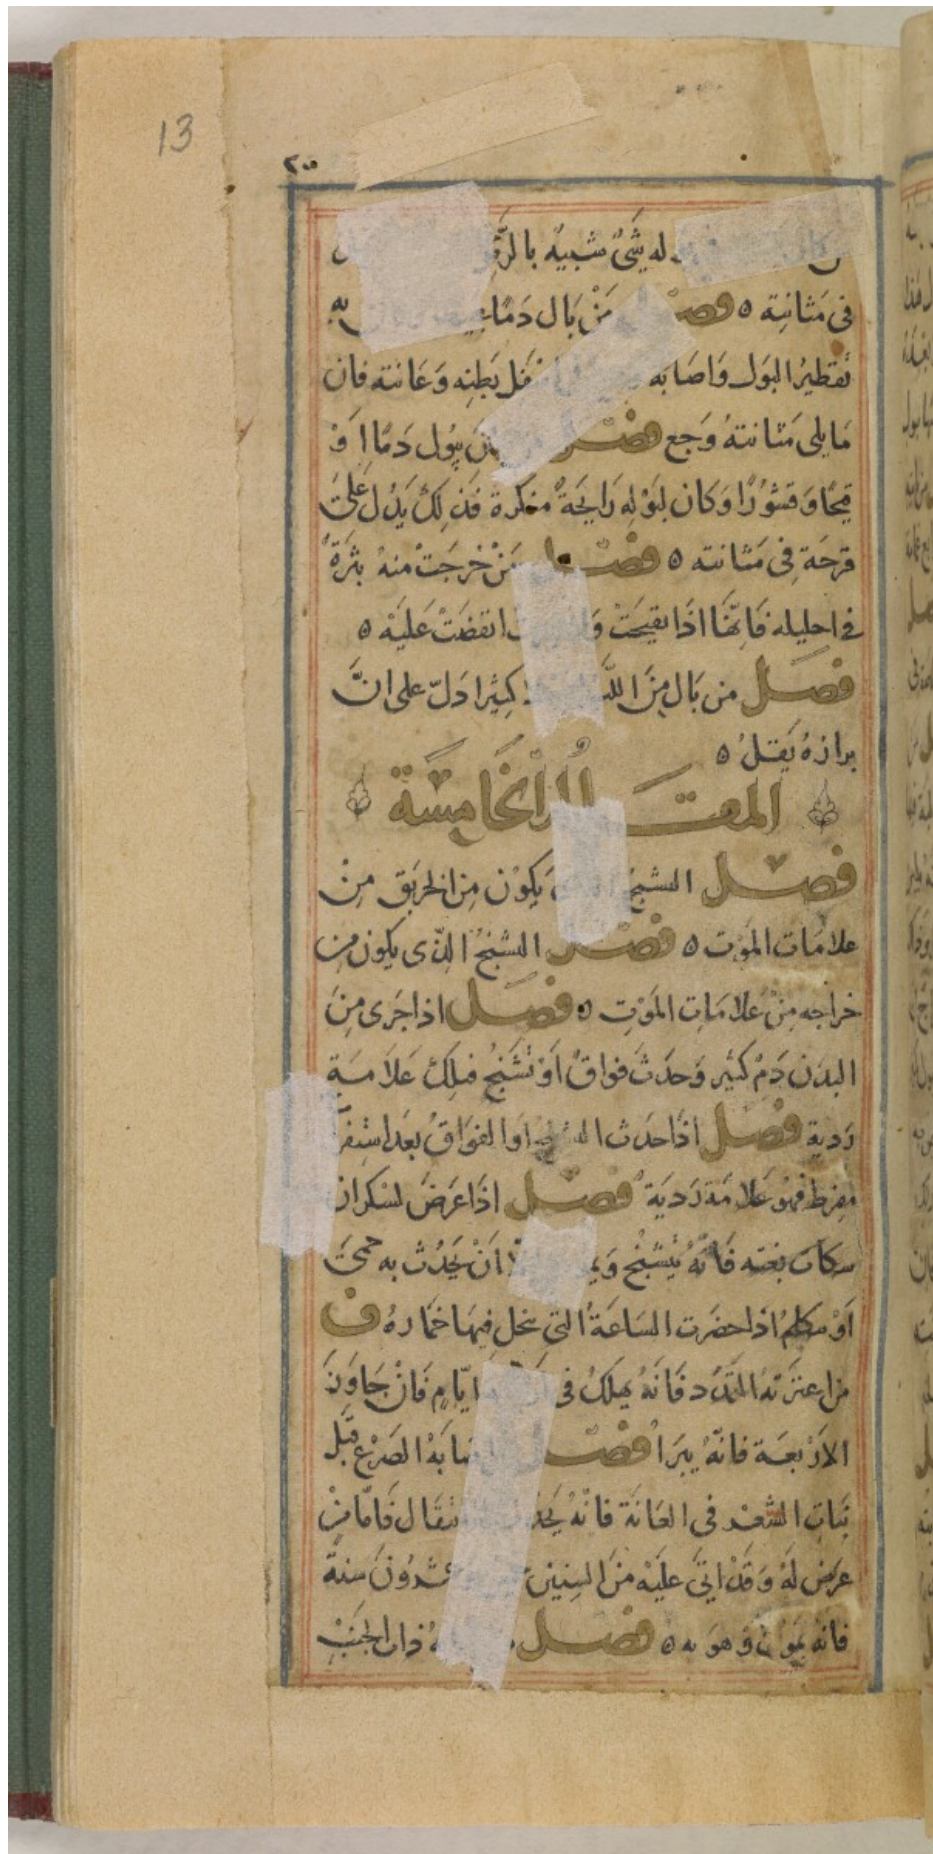 13
له شئ شبيه بالر
فى مثانته ه فصل من بال دما به
تقطير البول واصابه بطنه وعانته فان
ما يلى مثانته وجع فصل يبول دما او
قيحا وقشورا وكان لبوله رايحة منكرة فذلك يدل على
قرحة فى مثانته ه فصل من خرجت منه بثرة
فى احليله فانها اذا تقيحت انقضت عليه ه
فصل من بال من كثيرا دل على ان
برازه يقل ه
المقالة الخامسة
فصل التشنج يكون من الخربق من
علامات الموت ه فصل التشنج الذى يكون من
خراجه من علامات الموت ه فصل اذا جرى من
البدن دم كثير وحدث فواق او تشنج فذلك علامة
ردية فصل اذا حدث او الفواق بعد استفر
مفرط فهو علامة ردية فصل اذا عرض لسكران
سكات بغتة فانه يتشنج ان يحدث به حمى
او يتكلم اذا حضرت الساعة التى يحل فيها خماره ف
من اعترته التمدد فانه يهلك فى ايام فان جاوز
الاربعة فانه يبرا فصل الصرع قبل
نبات الشعر فى العانة فانه انتقال فاما من
عرض له وقد اتى عليه من السنين عشرون سنة
فانه يموت وهو به ه فصل ذات الجنب